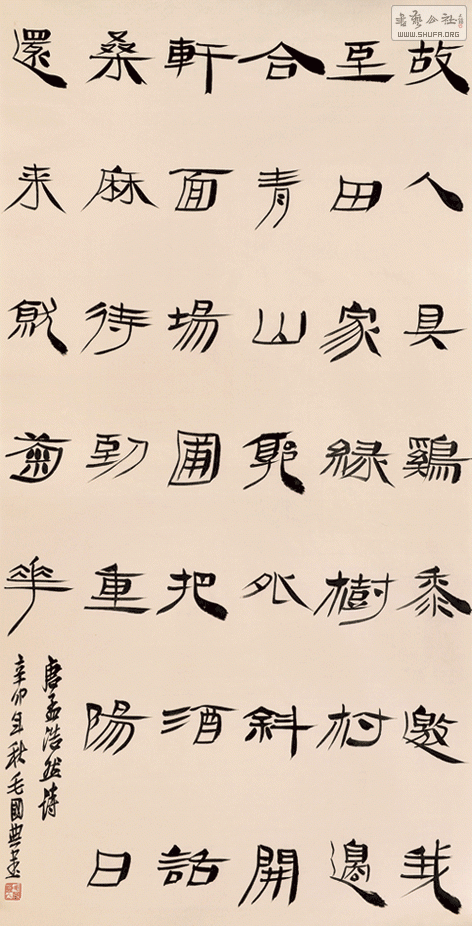 故人具鷄黍邀我
至田家緑樹村邊
合青山郭外斜開
軒面場圃把酒話
桑麻待到重陽日
還来就菊華
唐孟浩然詩
辛卯年秋毛國典書
WWW.SHUFA.ORG